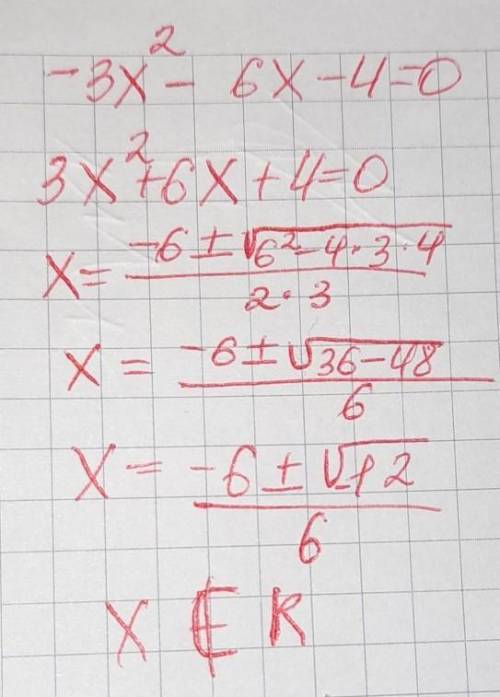 -3x² - 6x - 4 = 0
3x² + 6x + 4 = 0
x = (-6 ± √(6² - 4 · 3 · 4)) / (2 · 3)
x = (-6 ± √(36 - 48)) / 6
x = (-6 ± √(-12)) / 6
x ∉ R